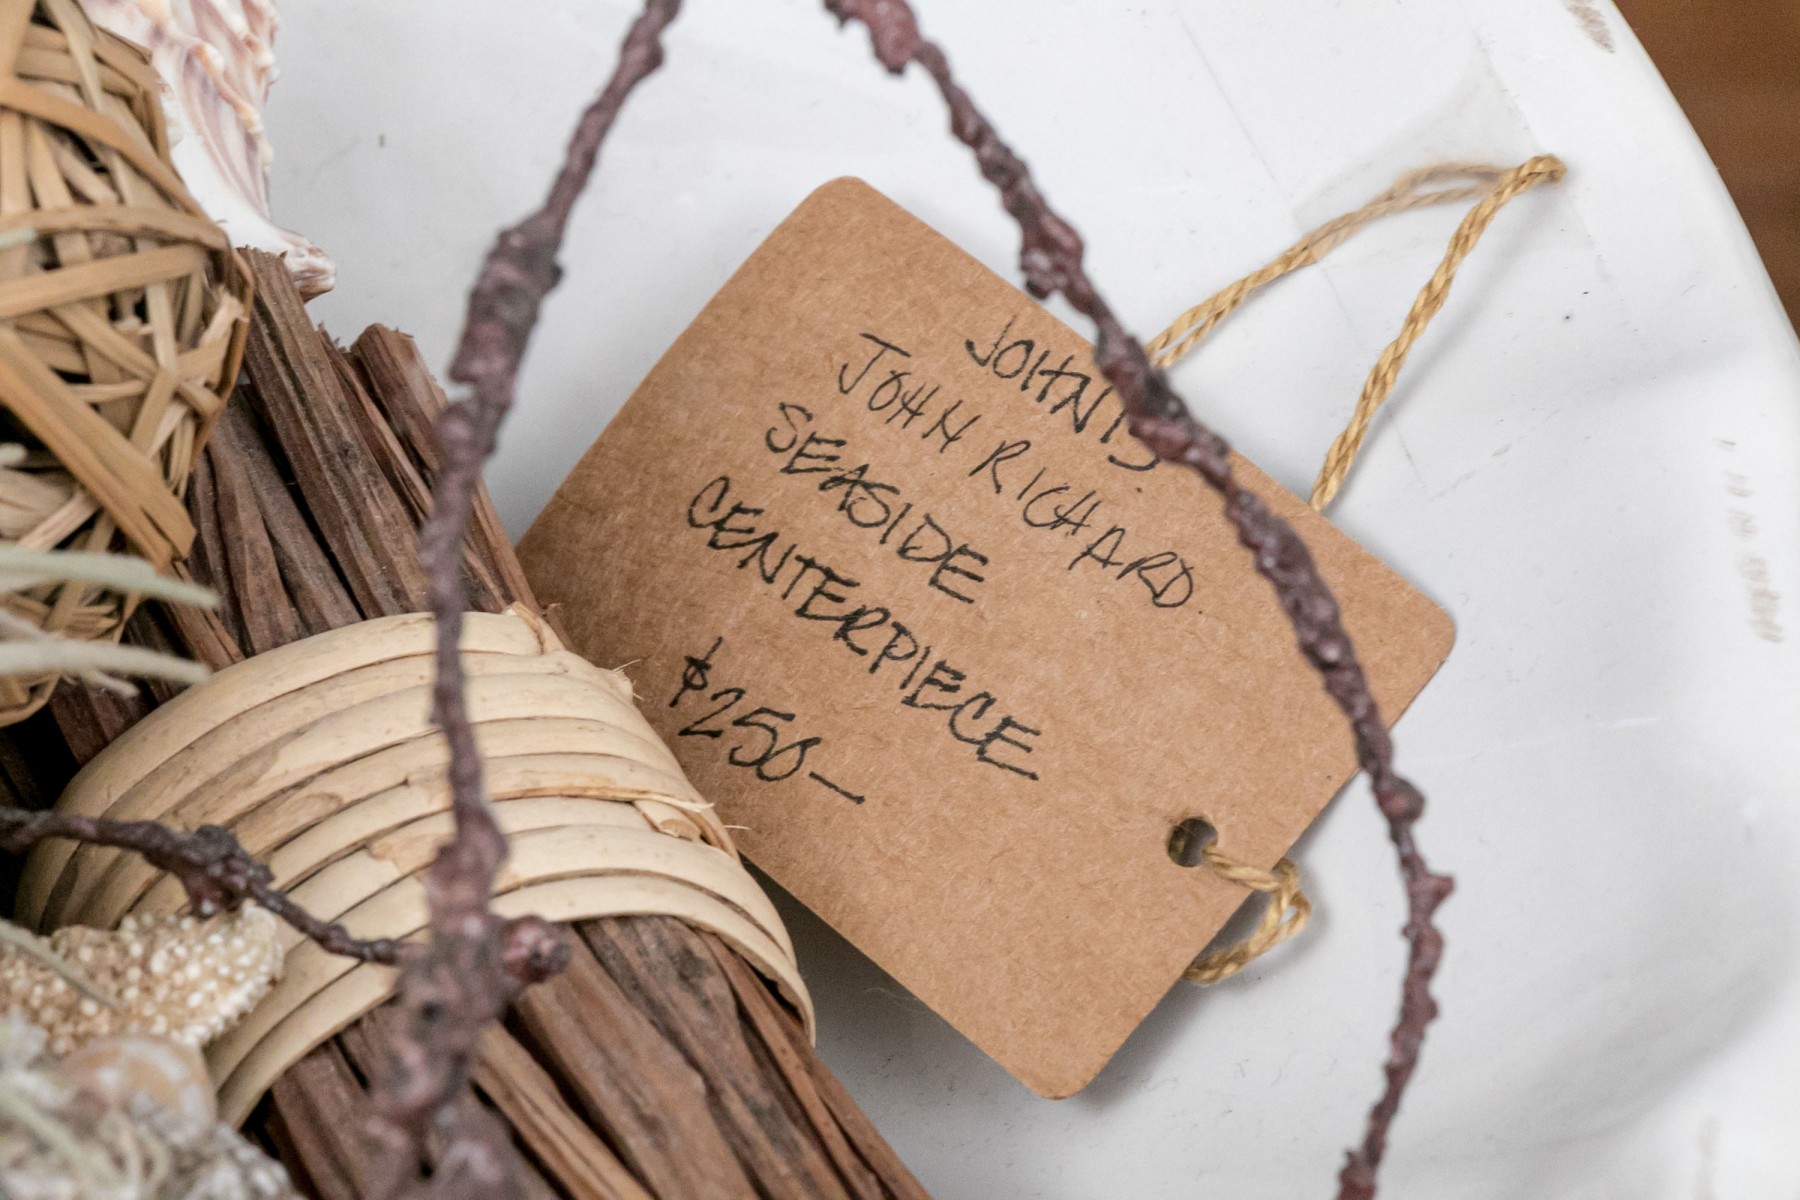 JOHN'S
JOHN RICHARD
SEASIDE
CENTERPIECE
$250—